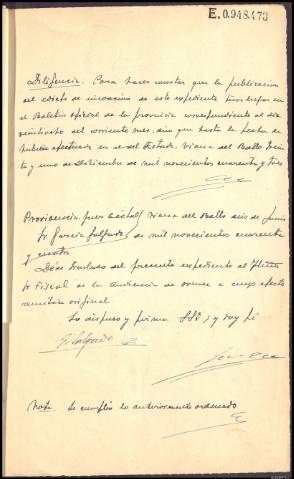 E.0.948.470
Diligencia. Para hacer constar que la publicacion
del edicto de incoacion de este expediente tuvo lugar en
el Boletin oficial de la provincia correspondiente al dia
veintiocho del corriente mes, sin que hasta la fecha se
hubiese efectuado en el del Estado. Viana del Bollo trein
ta y uno de Diciembre de mil novecientos cuarenta y tres
Providencia juez
Sr Garcia Salgado
Viana del Bollo seis de Junio
de mil novecientos cuarenta
y cuatro
Dése traslado del presente expediente al
Sr Fiscal de la Audiencia de Orense a cuyo efecto
remitase original
Lo dispuso y firma SSª; y doy fé
G. Salgado
Nota. Se cumplio lo anteriormente ordenado